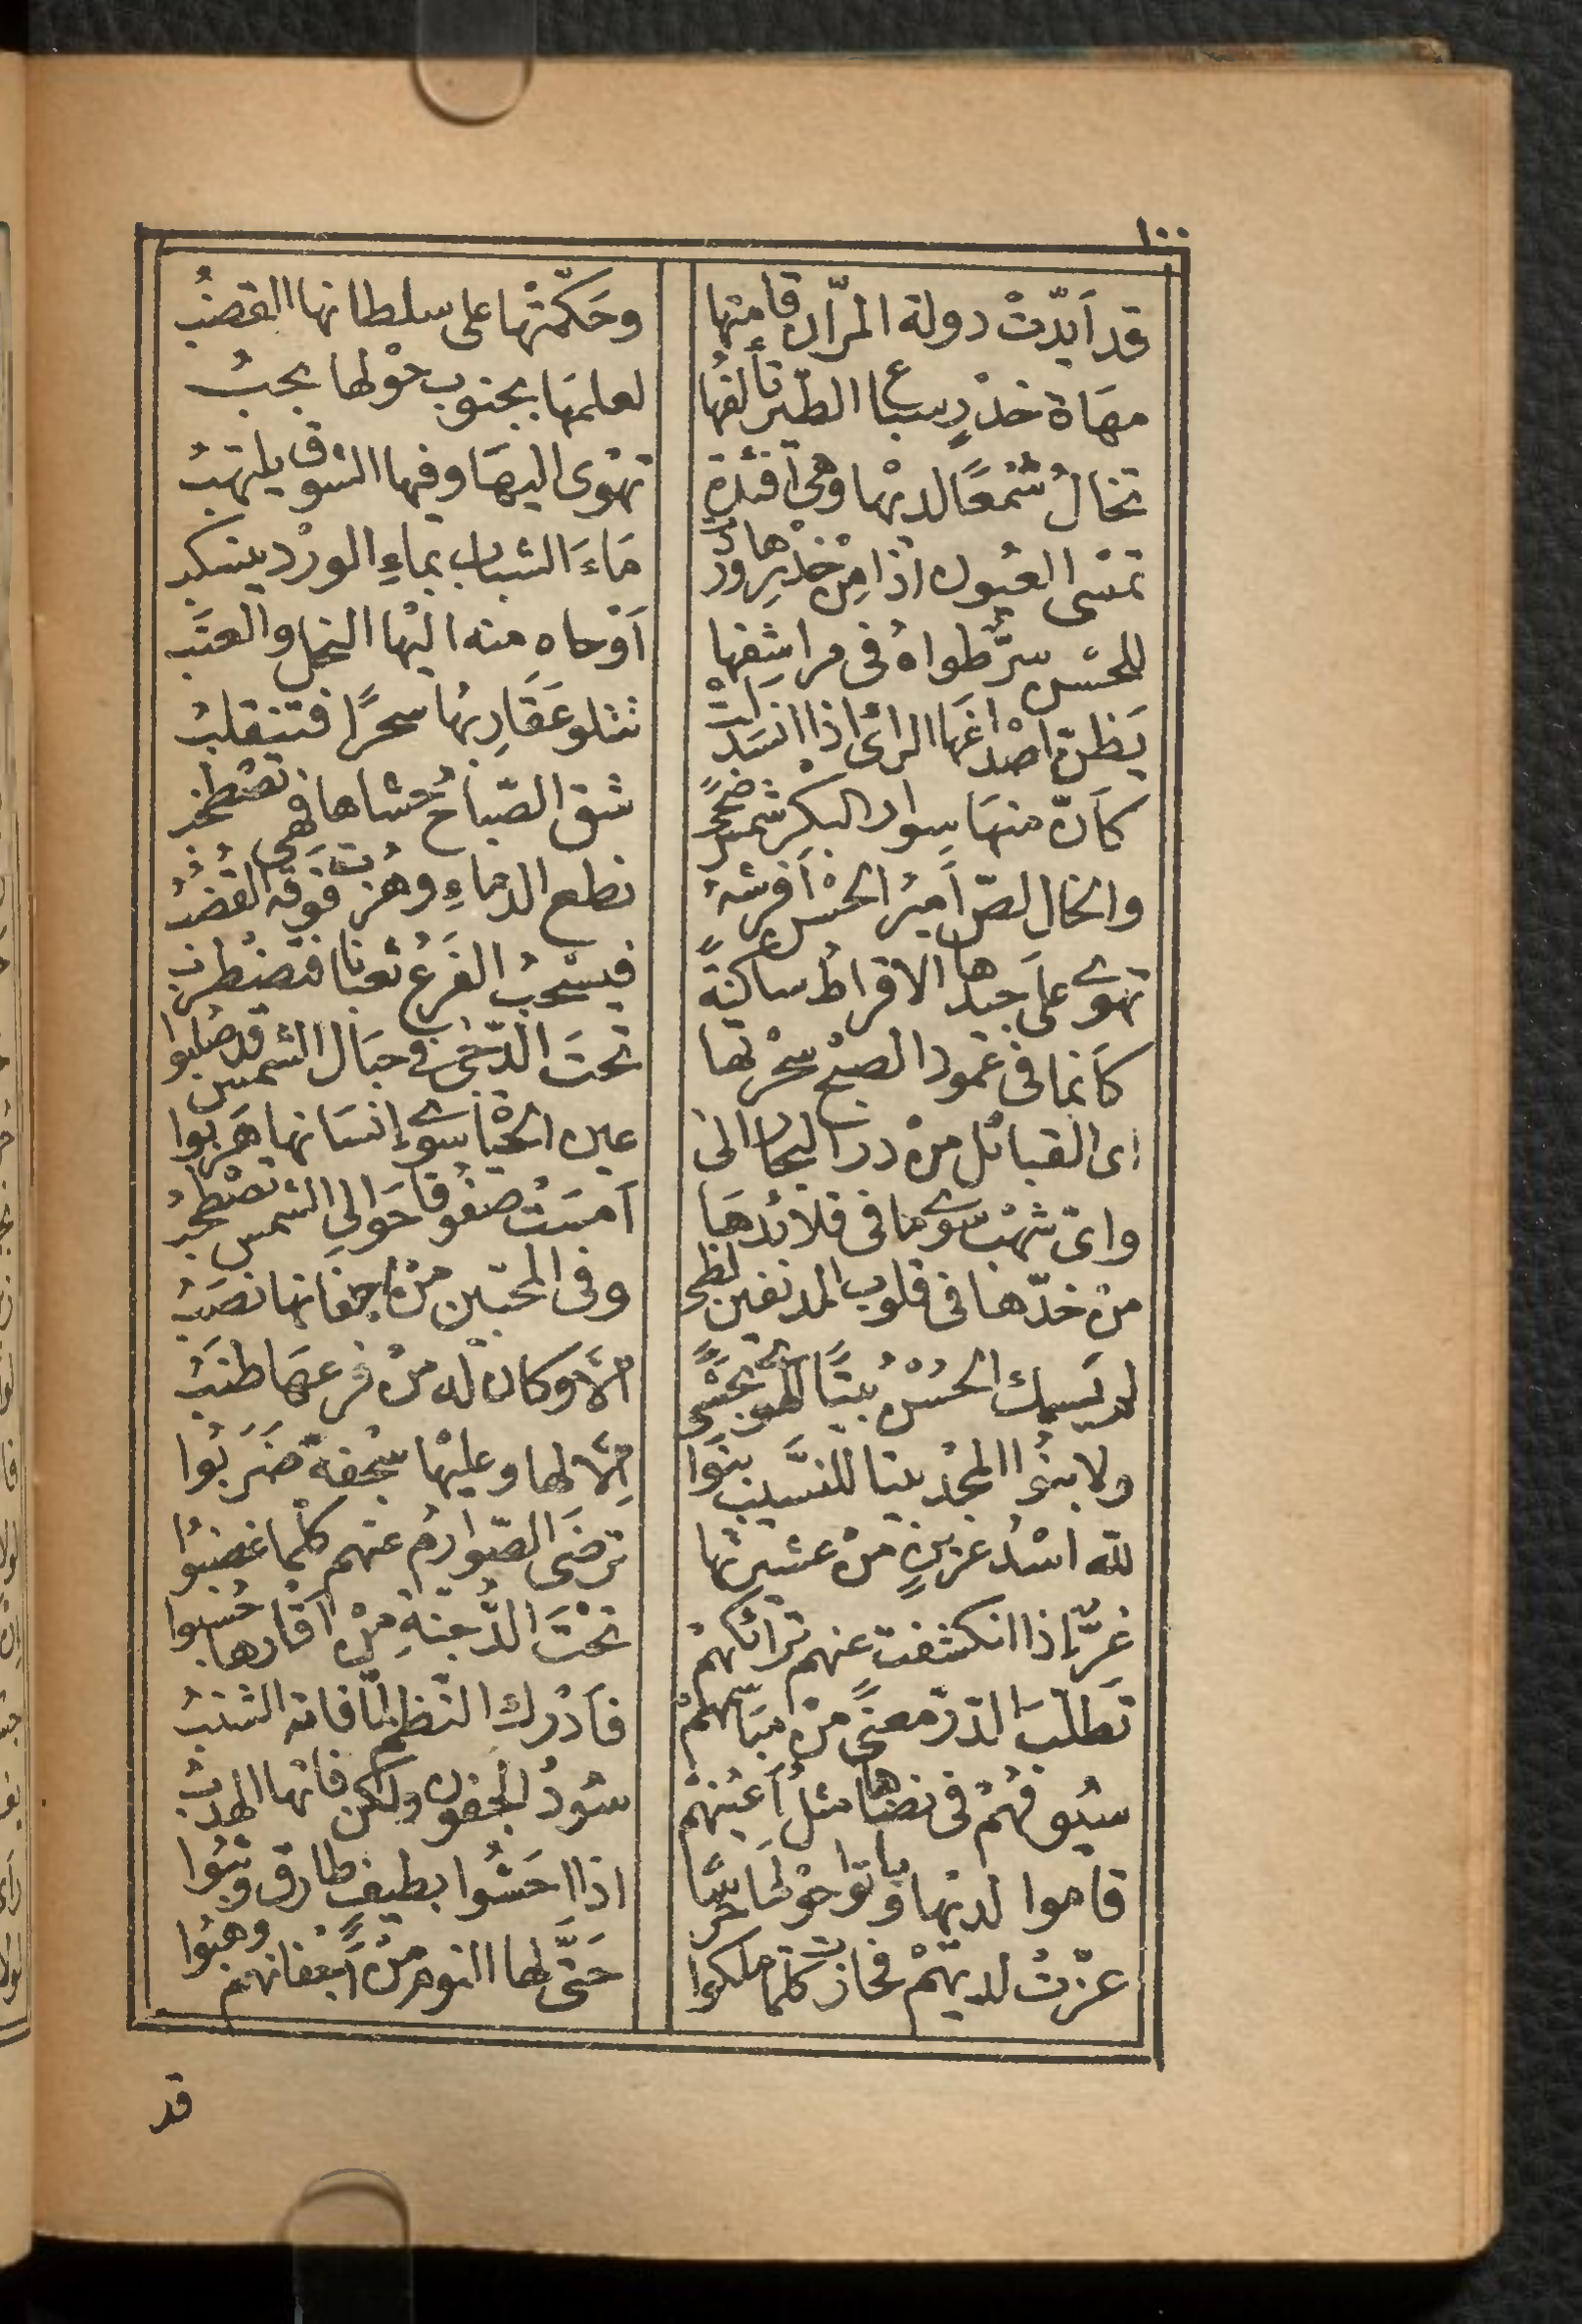 ١٠٠
قد اَيّدتْ دولة المرّان قامتها وحَكّمتْها على سلطانها القضبُ
مهَاة خدْرٍ سباع الطير تألفُها لعلمهَا بجنوب حوْلها يجبُ
تخالُ شمْعًا لديْها وهي أفئدة تهْوى اليهَا وفيها الشوق يلتهبُ
تمسى العيُون اذا مِنْ خدْرِها وردتْ مَاءَ الشباب بماءِ الورْد ينسكب
للحسْن سرٌّ طواهُ فى مراشِفها اَوْحاه منه اليْها النحل والعنَب
يَظن اصْداغَها الرائى اذا انسَدلتْ تتلو عَقَارِبهُا سحرًا فتنقلبُ
كأنّ منهَا سوار البكْر شمسُ ضحًى شق الصّباحُ حُشاها فهي تصْطخب
والخال لصّ اَميرُ الحسْن اَفرشهُ نطع الدماءِ وهُزت فوْقه القُضُبُ
تهوى علَى جيدها الاقراطُ ساكنةً فيسْحبُ الفَرْعُ ثعبَانا فتضْطربُ
كأنما فى عَمود الصبْح سحْرتها تحتَ الدّجى فى حبَال الشمس قد صُلبوا
اى القبائل منْ در البحار الى عين الحيْا سوى إنسَانها هَربوا
واىّ شهْب سوى ما فى قلائدهَا اَمسَت صفُوفا حَوالى الشمس تصْطحبُ
منْ خدّها فى قلوب المدنفين لظى وفى المحبّين منْ اجفانها نصَبُ
لم يَسمك الحُسْنُ بيتًا للهوى بحَشًى اِلّا وكان له منْ فرعهَا طنبُ
ولا بنُوا المجْد بيتا للنسَّيب بنَوا اِلّا لها وعليْها سجْفهَ ضَرَبوُا
لله اسْدُ عَزينٍ منْ عشيرتها ترضَى الصّوارمُ عنهم كلّما غضبُوا
غرٌّ اِذا انكشفت عنهم ترائكهمْ تحْتَ الدُّجنةِ مِنْ اَقمارها حُسبوا
تَطلّبَ الدرّ معنىً منْ مبَاسمهمْ فاَدْرك النّظم لمّا فاته الشنبُ
سيُوفهُمْ فى نضَاها مثلُ اَعيُنهمْ سُودُ الجفون ولكن فاتها الهدبُ
قاموا لديْها وباتوا حوْلها حَرَسًا اذا احَسُّوا بطيف طارق وثبُوا
عزّتْ لديْهمْ فحازت كلّما ملكوا حَتَّى لها النوم منْ اَجْفانهم وهبُوا
قد